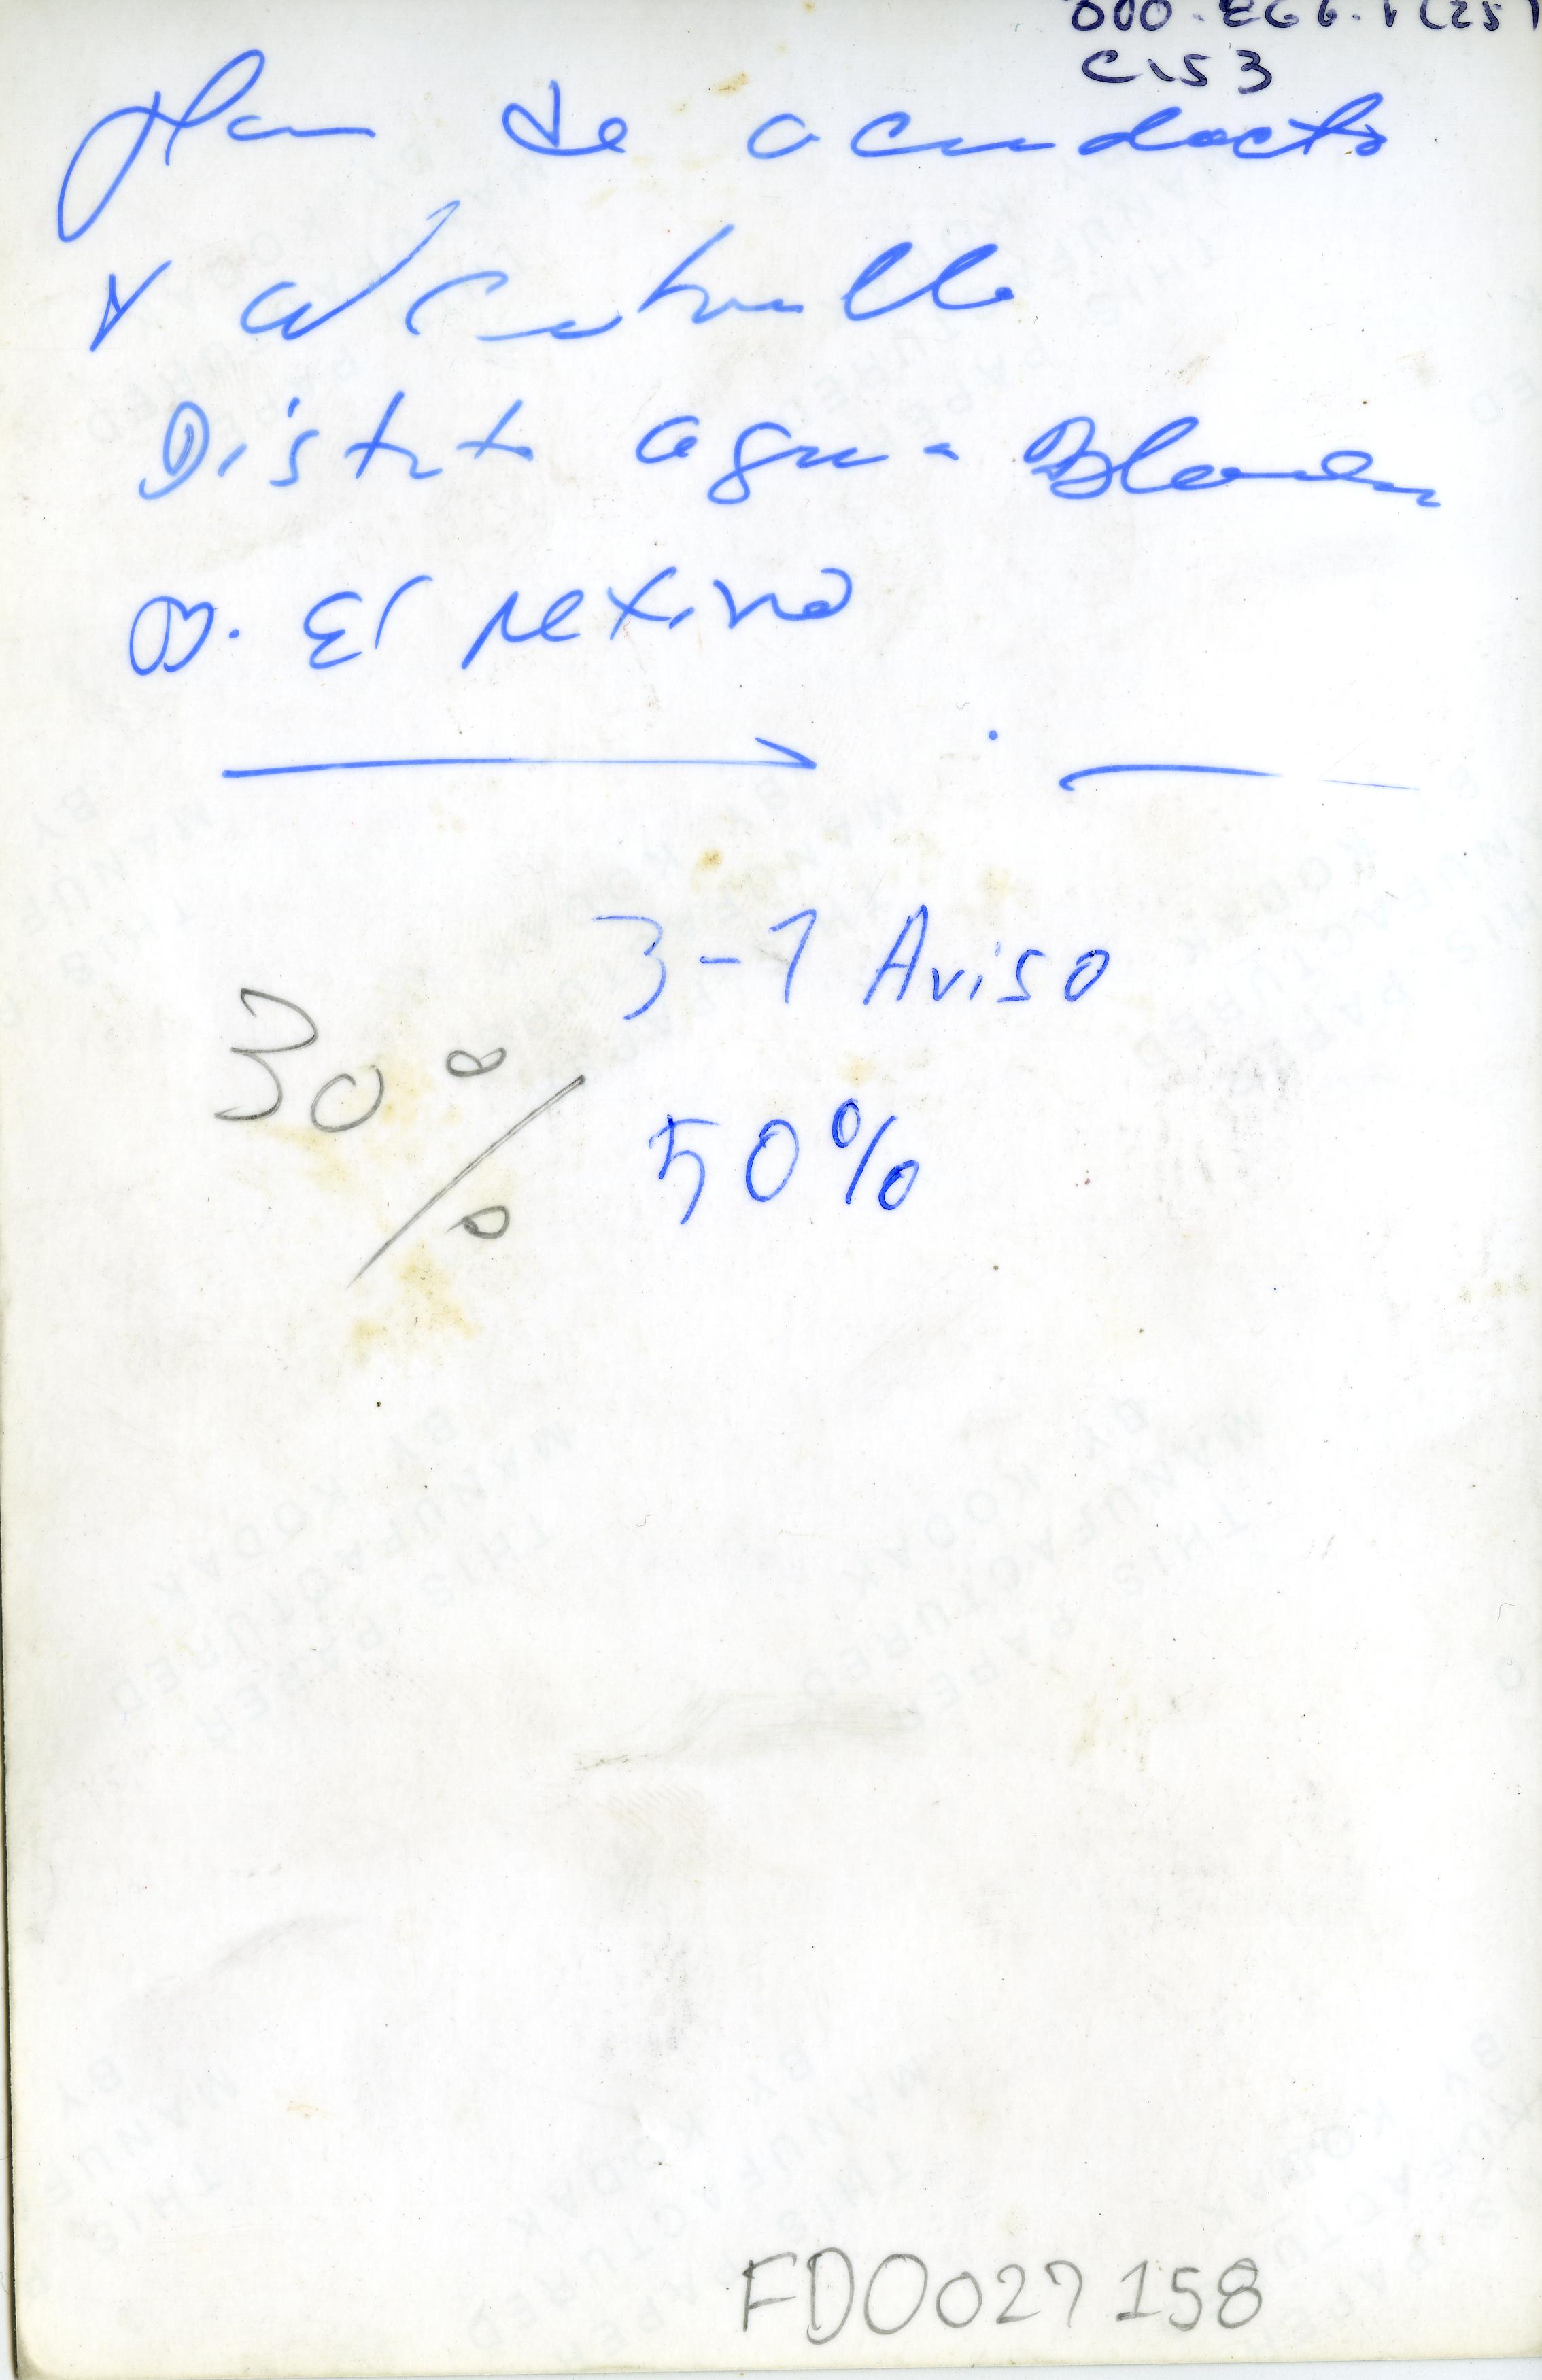 C153
Plan de acueducto
y alcantarillado
Distrito agua Blanca
B. El Retiro
3-1 Aviso
30%
50%
FDO027158